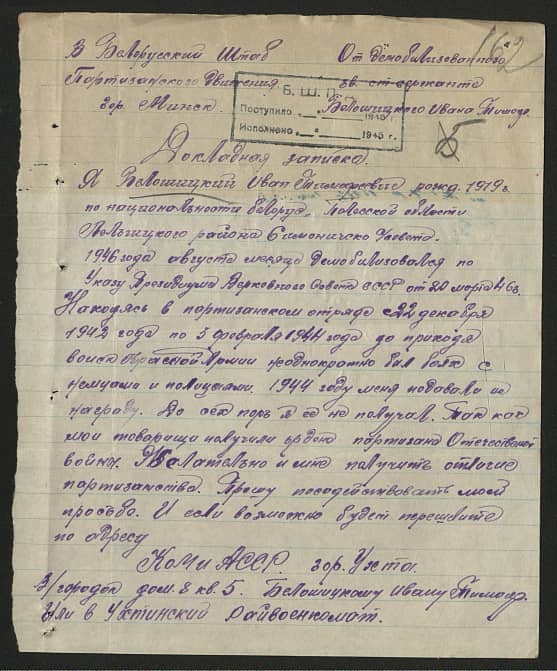 162
В Белорусский Штаб От демобилизованного
Партизанского Движения зв. ст. сержанта
гор. Минск. Белошицкого Ивана Тимоф.
Б. Ш. П. Д.
Поступило „ “ 1945 г.
Исполнено „ “ 1945 г.
Докладная записка.
Я Белошицкий Иван Тимофеевич рожд. 1919 г.
по национальности белорус, Полесской области
Ельницкого района Симоничско С/совета.
1946 года августа месяца Демобилизовался по
Указу Президиума Верховного Совета СССР от 20 марта 46 г.
Находясь в партизанском отряде с 22 декабря
1942 года по 5 февраля 1944 года до прихода
войск Красной Армии неоднократно был боях с
немцами и полицаями. 1944 году меня подавали не
награду. До сех пор я её не получал. Так как
мои товарищи получили ордена партизана Отечественой
войны. Желательно и мне получить отличие
партизанства. Прошу посодействовать моей
просьбе. И если возможно будет перешлите
по адресу
Коми АССР. гор. Ухта.
В/городок дом. 8 кв. 5. Белошицкому Ивану Тимоф.
Или в Ухтинский Райвоенкомат.